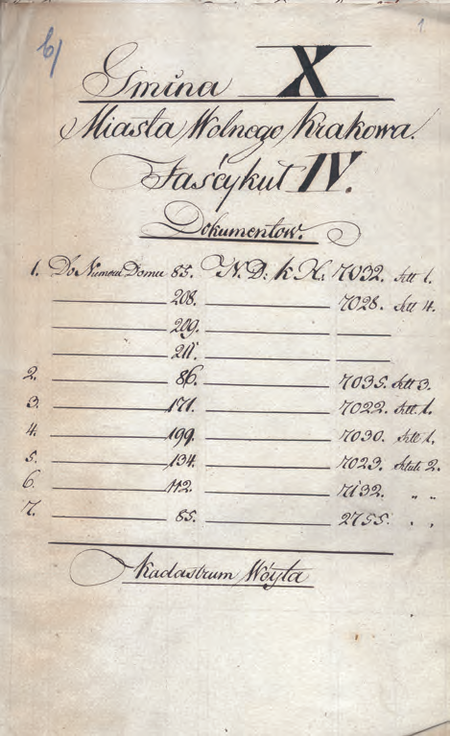 6/
1.
Gmina X
Miasta Wolnego Krakowa.
Faścykuł IV.
Dokumentow.
1. Do Numeru Domu 85. N. D. k K: 7032. Sztt 1.
208. 7028. Sztt 4.
209.
211.
2. 86. 7035. Sztt 3.
3. 171. 7022. Sztt. 1.
4. 199. 7030. Sztt 1.
5. 134. 7023. Sztuk 2.
6. 112. 7132. " "
7. 85. 2755. " "
Kadastrum Wóyta